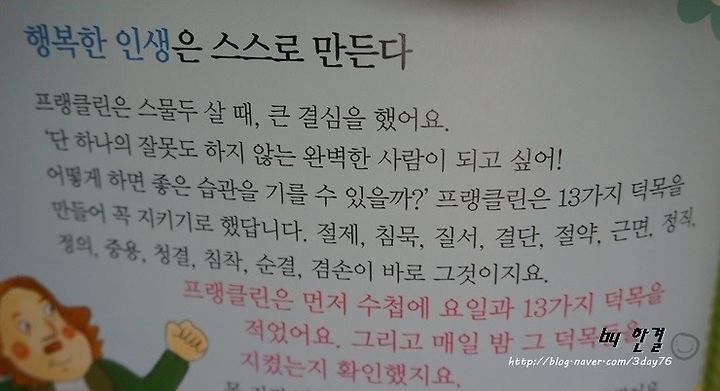 행복한 인생은 스스로 만든다
프랭클린은 스물두 살 때, 큰 결심을 했어요.
'단 하나의 잘못도 하지 않는 완벽한 사람이 되고 싶어!
어떻게 하면 좋은 습관을 기를 수 있을까?' 프랭클린은 13가지 덕목을
만들어 꼭 지키기로 했답니다. 절제, 침묵, 질서, 결단, 절약, 근면, 정직,
정의, 중용, 청결, 침착, 순결, 겸손이 바로 그것이지요.
프랭클린은 먼저 수첩에 요일과 13가지 덕목을
적었어요. 그리고 매일 밤 그
지켰는지 확인했지요.
by 한결
http://blog.naver.com/3day76